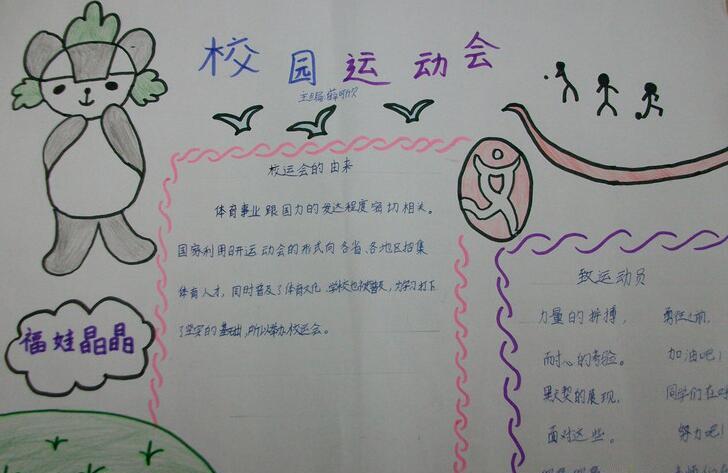 校园运动会
主编:薛
校运会的由来
体育事业跟国力的发达程度密切相关。
国家利用召开运动会的形式向各省、各地区招集
体育人才,同时普及了体育文化,学校也被普及,为学习打下
了坚实的基础,所以举办校运会。
福娃晶晶
致运动员
力量的拼搏, 勇往之前,
耐心的考验。 加油吧!
默契的展现, 同学们在
面对这些。 努力吧!